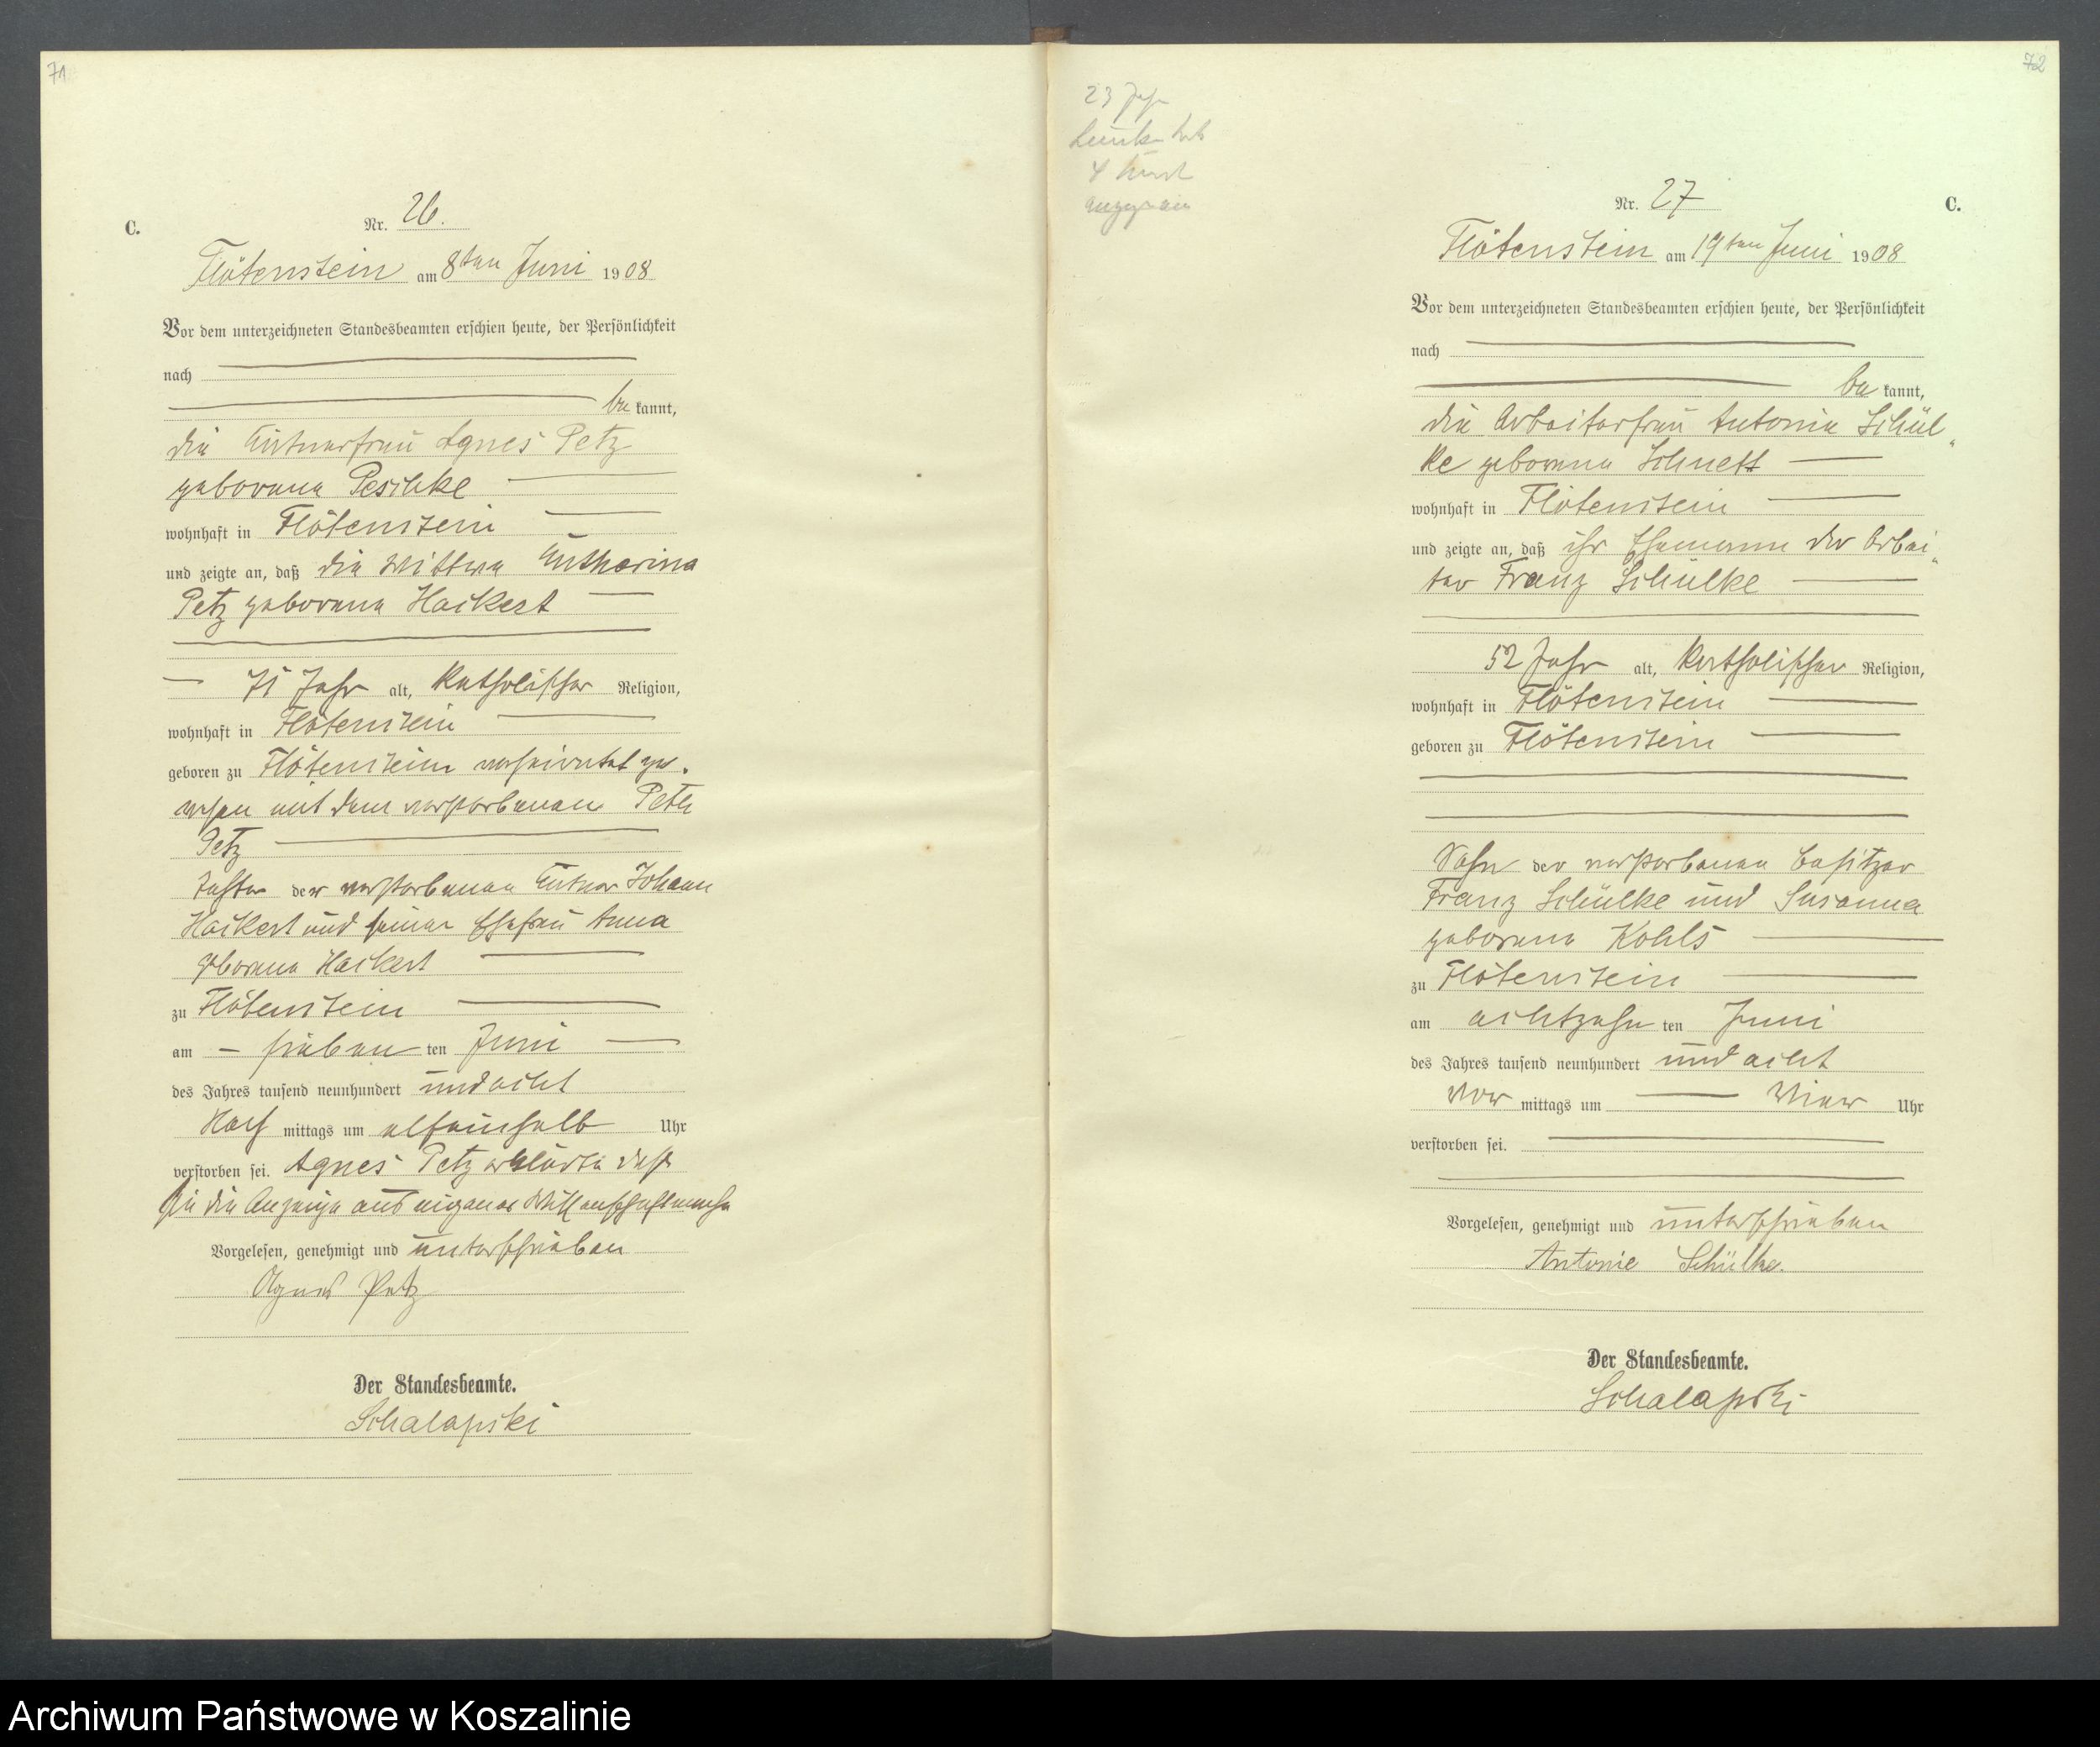 71
C.
Nr. 26.
Flötenstein am 8ten Juni 1908
Vor dem unterzeichneten Standesbeamten erschien heute, der Persönlichkeit
nach
be kannt,
die Eigentümerfrau Agnes Petz
geborene Peschke
wohnhaft in Flötenstein
und zeigte an, daß die Wittwe Katharina
Petz geborene Hackert
75 Jahr alt, katholischer Religion,
wohnhaft in Flötenstein
geboren zu Flötenstein verheiratet ge-
wesen mit dem verstorbenen Peter
Petz
Tochter der verstorbenen Johann
Hackert und seiner Ehefrau Anna
geborene Hackert
zu Flötenstein
am sieben ten Juni
des Jahres tausend neunhundert und acht
Nach mittags um elfeinhalb Uhr
verstorben sei. Agnes Petz erklärte daß
sie die Anzeige aus eigener Wissenschaft mache
Vorgelesen, genehmigt und unterschrieben
Agnes Petz
Der Standesbeamte.
Schalapski
72
23 Jahr
4 Kind
Nr. 27
C.
Flötenstein am 19ten Juni 1908
Vor dem unterzeichneten Standesbeamten erschien heute, der Persönlichkeit
nach
be kannt,
die Arbeiterfrau Antonie Schül-
ke geborene Schnett
wohnhaft in Flötenstein
und zeigte an, daß ihr Ehemann der Arbei-
ter Franz Schülke
52 Jahr alt, katholischer Religion,
wohnhaft in Flötenstein
geboren zu Flötenstein
Sohn der verstorbenen Besitzer
Franz Schülke und Susanna
geborene Kohls
zu Flötenstein
am achtzehn ten Juni
des Jahres tausend neunhundert und acht
Vor mittags um Vier Uhr
verstorben sei.
Vorgelesen, genehmigt und unterschrieben
Antonie Schülke.
Der Standesbeamte.
Schalapski
Archiwum Państwowe w Koszalinie